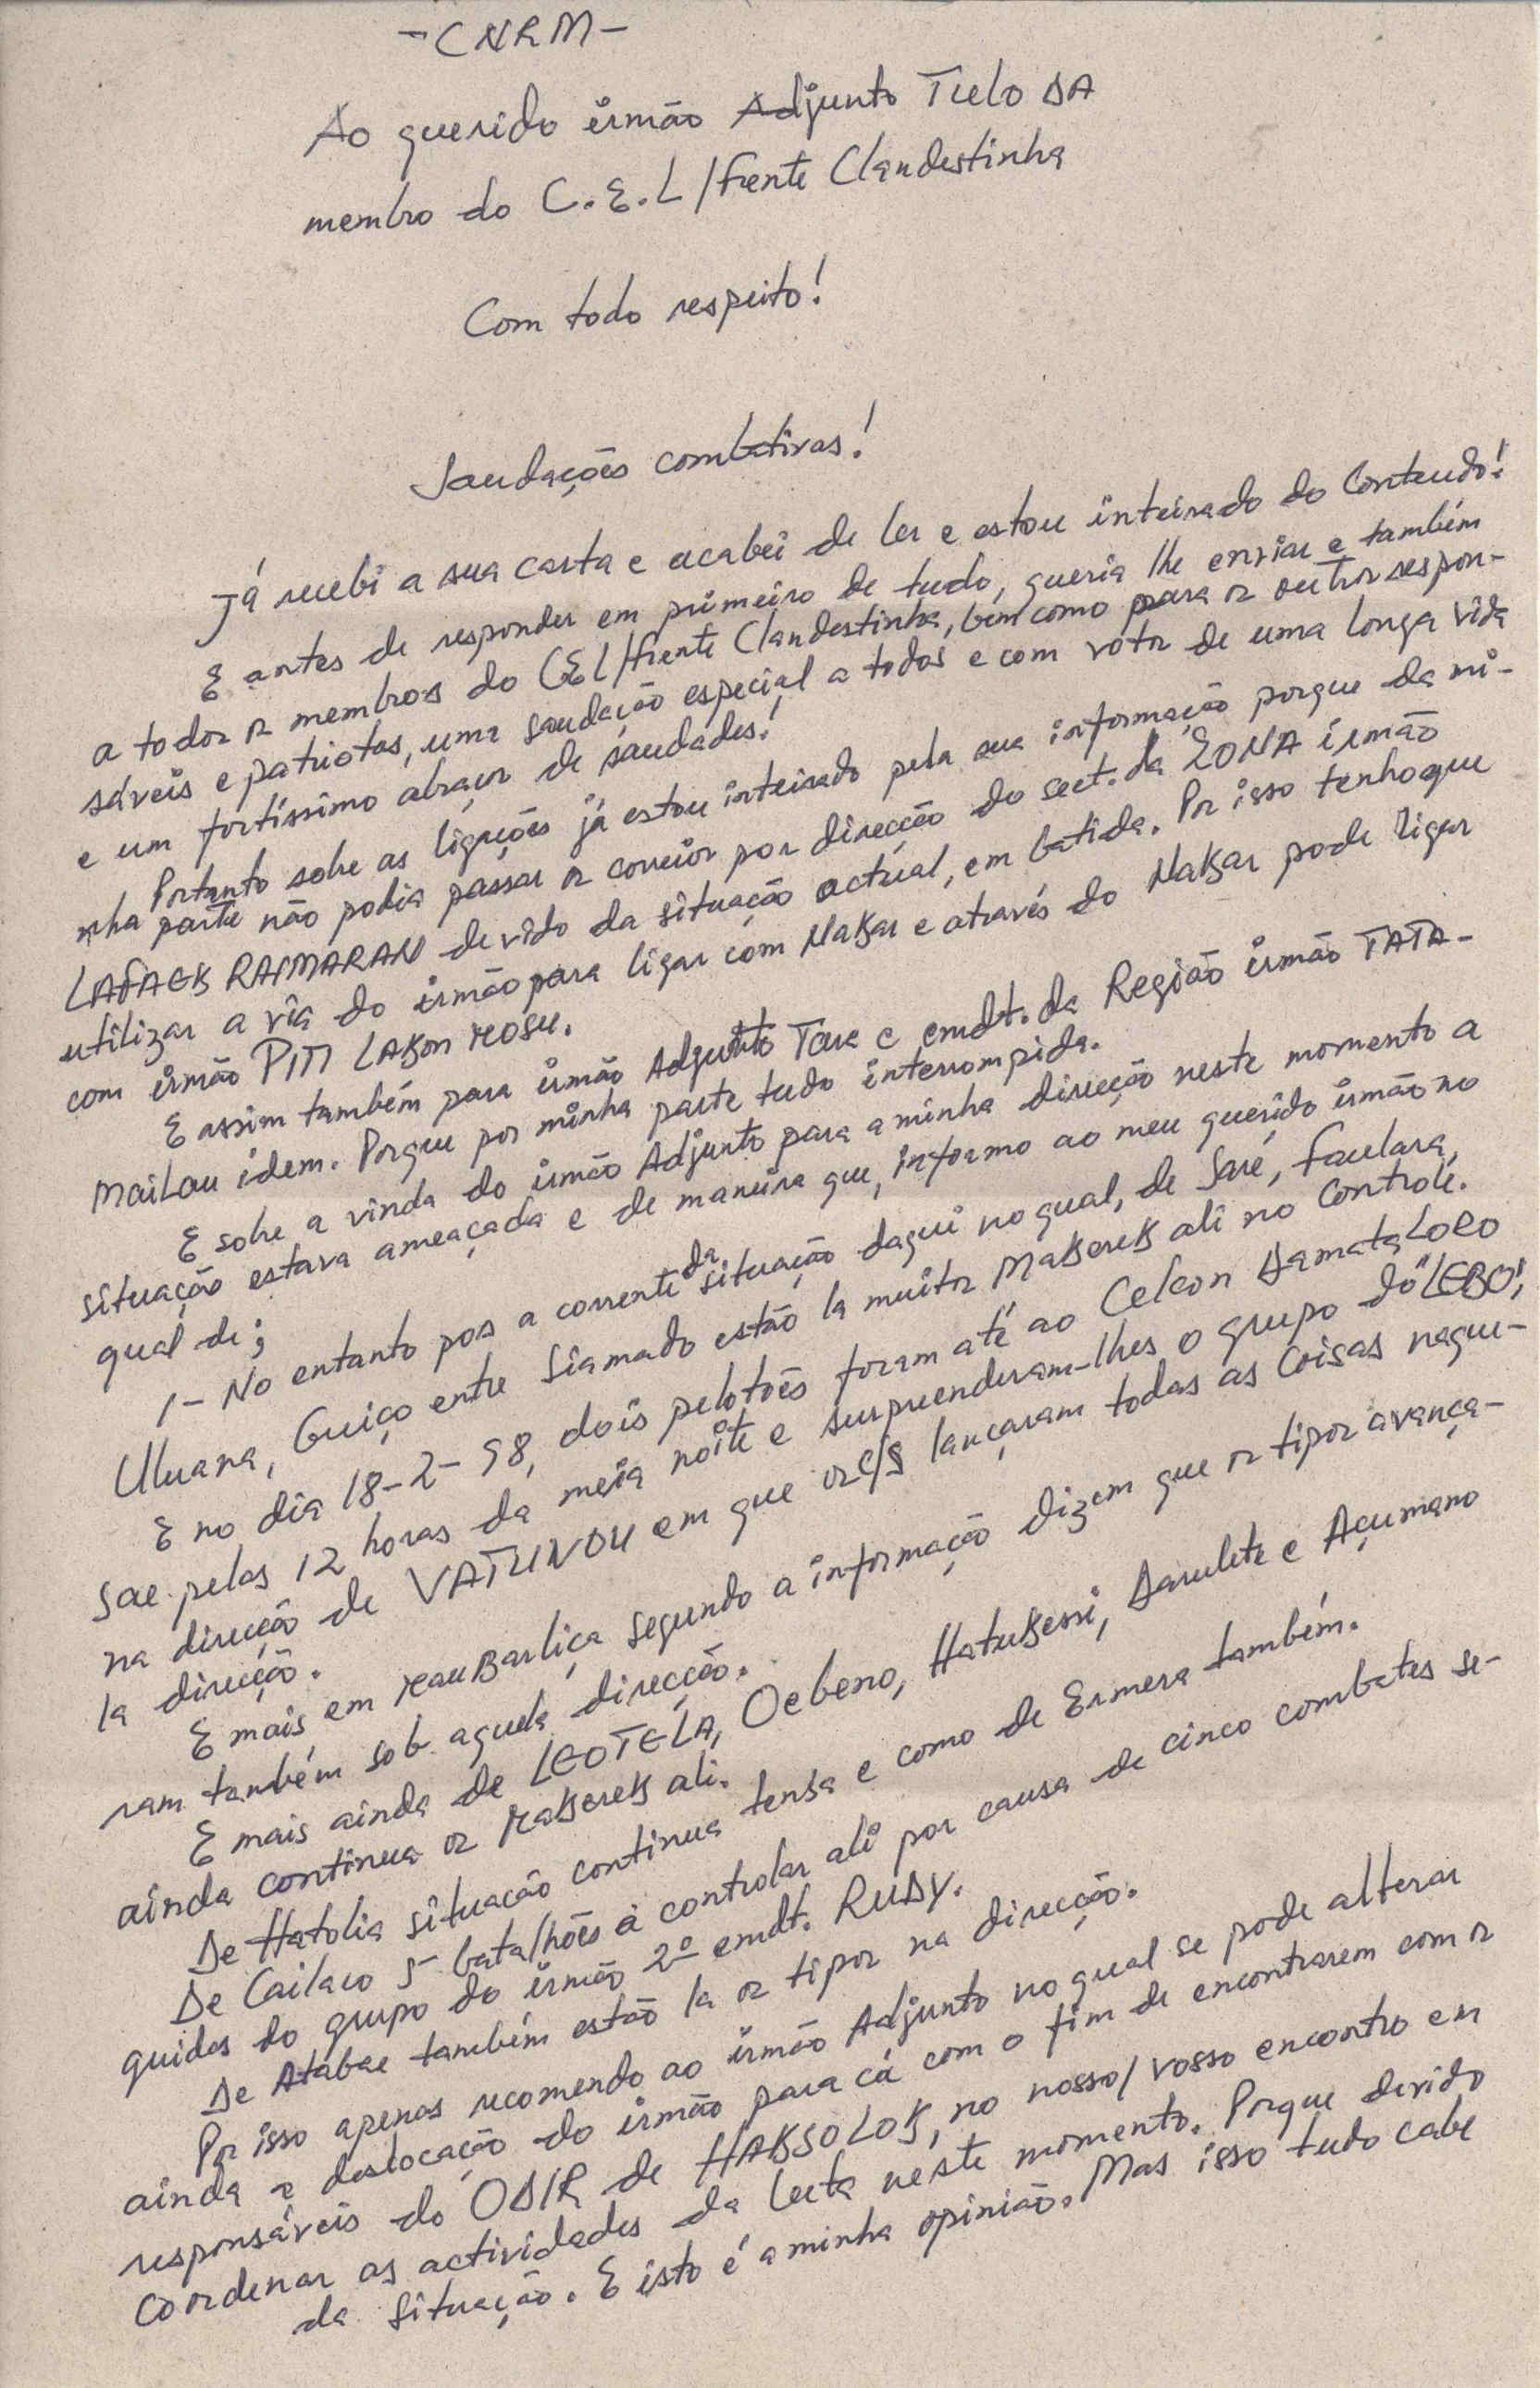 - CNRM -
Ao querido irmão Adjunto Tulo DA
membro do C.E.L/Frente Clandestinha
Com todo respeito!
Saudações combativas!
Já recebi a sua carta e acabei de ler e estou inteirado do Conteudo!
E antes de responder em primeiro de tudo, queria lhe enviar e também
a todos os membros do CEL/Frente Clandestinha, bem como para os outros respon-
sáveis e patriotas, uma saudação especial a todos e com votos de uma longa vida
e um fortíssimo abraços de saudades!
Portanto sobre as ligações já estou inteirado pela sua informação porque da mi-
nha parte não podia passar os correios por direcção do sect. da ZONA irmão
LAFAEK RAIMARAN devido da situação actual, em batida. Por isso tenho que
utilizar a via do irmão para ligar com Nakar e através do Nakar pode ligar
com irmão PITI LAKON MOSU.
E assim também para irmão Adjunto Taua e cmdt. da Região irmão TATA-
MaiLau idem. Porque por minha parte tudo interrompida.
E sobre a vinda do irmão Adjunto para a minha direcção neste momento a
situação estava ameaçada e de maneira que, informo ao meu querido irmão no
qual de;
1- No entanto pos a corrente da situação daqui no qual, de Saré, Faulara,
Uluana, Guiço entre Siamado estão la muitos Makerek ali no Controlé.
E no dia 18-2-98, dois pelotões foram até ao Celcon Damata LORO
Sae pelas 12 horas da meia noite e surpreenderam-lhes o grupo do "LEBO",
na direcção de VATUVOU em que os c/s lançaram todas as Coisas naque-
la direcção.
E mais, em MauBarliça segundo a informação dizem que os tipos avança-
ram também sob aquela direcção.
E mais ainda de LEOTELA, Oebeno, Hatukessi, Darulete e Açumano
ainda continua os Makerek ali.
De Hatolia situação continua tensa e como de Ermera também.
De Cailaco 5 batalhões à controlar ali por causa de cinco combates se-
guidos do grupo do irmão 2º cmdt. RUDY.
De Atabae também estão la os tipos na direcção.
Por isso apenas recomendo ao irmão Adjunto no qual se pode alterar
ainda a deslocação do irmão para cá com o fim de encontrarem com os
responsáveis do ODIR de HAKSOLOK, no nosso/vosso encontro em
Coordenar as actividades da luta neste momento. Porque devido
da Situação. E isto é a minha opinião. Mas isso tudo cabe